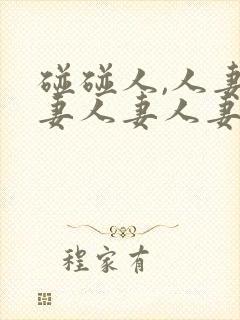 碰碰人,人妻
妻人妻人妻
程家有